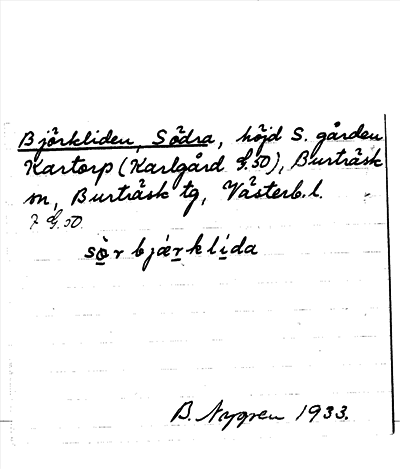 Björkliden, Södra, höjd S. gården
Kartorp (Karlgård G. 50), Burträsk
sn, Burträsk tg, Västerb. l.
? G. 50.
sò̱r bjǽṟk lí̱da
B. Nygren 1933.